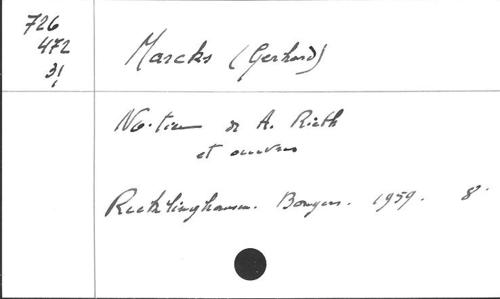 726
472
3!
Marcks (Gerhard)
Notice de A. Rieth
et œuvres
Recklinghausen. Bongers. 1959. 8°